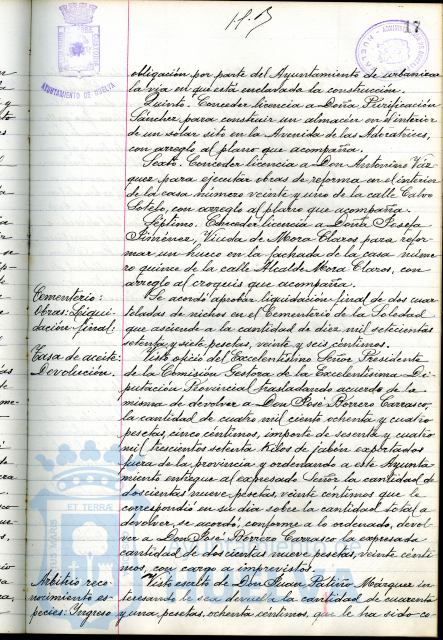 17
AYUNTAMIENTO DE HUELVA
obligación por parte del Ayuntamiento de urbanizar
la vía en que está enclavada la construcción.
Quinto. Conceder licencia a Doña Purificación
Sánchez para construir un almacén en el interior
de un solar sito en la Avenida de las Adoratrices,
con arreglo al plano que acompaña.
Sexto. Conceder licencia a Don Antonino Váz-
quez para ejecutar obras de reforma en el interior
de la casa número veinte y uno de la calle Calvo
Sotelo, con arreglo al plano que acompaña.
Séptimo. Conceder licencia a Doña Josefa
Jiménez, Viuda de Mora Claros, para refor-
mar un hueco en la fachada de la casa núme-
ro quince de la calle Alcalde Mora Claros, con
arreglo al croquis que acompaña.
Cementerio:
Obras: Liqui-
dación final:
Se acordó aprobar liquidación final de dos cuar-
teladas de nichos en el Cementerio de la Soledad
que asciende a la cantidad de diez mil seiscientas
setenta y siete pesetas, veinte y seis céntimos.
Tasa de aceite:
Devolución:
Visto oficio del Excelentísimo Señor Presidente
de la Comisión Gestora de la Excelentísima Di-
putación Provincial trasladando acuerdo de la
misma de devolver a Don José Borrero Carrasco,
la cantidad de cuatro mil ciento ochenta y cuatro
pesetas, cinco céntimos, importe de sesenta y cuatro
mil trescientos setenta kilos de jabón exportados
fuera de la provincia y ordenando a este Ayunta-
miento entregue al expresado Señor la cantidad de
doscientas nueve pesetas, veinte céntimos que le
correspondió en su día sobre la cantidad total a
devolver, se acordó, conforme a lo ordenado, devol-
ver a Don José Borrero Carrasco la expresada
cantidad de doscientas nueve pesetas, veinte cénti-
mos, con cargo a imprevistos.
Arbitrio reco-
nocimiento es-
pecies: Ingreso
Visto escrito de Don Juan Patiño Márquez in-
teresando le sea devuelta la cantidad de cuarenta
y una pesetas, ochenta céntimos, que le ha sido co-